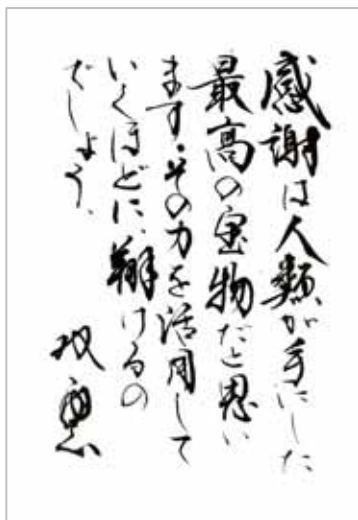 感謝は人類が手にした
最高の宝物だと思い
ます。その力を活用して
いくほどに、翔けるの
でしょう、